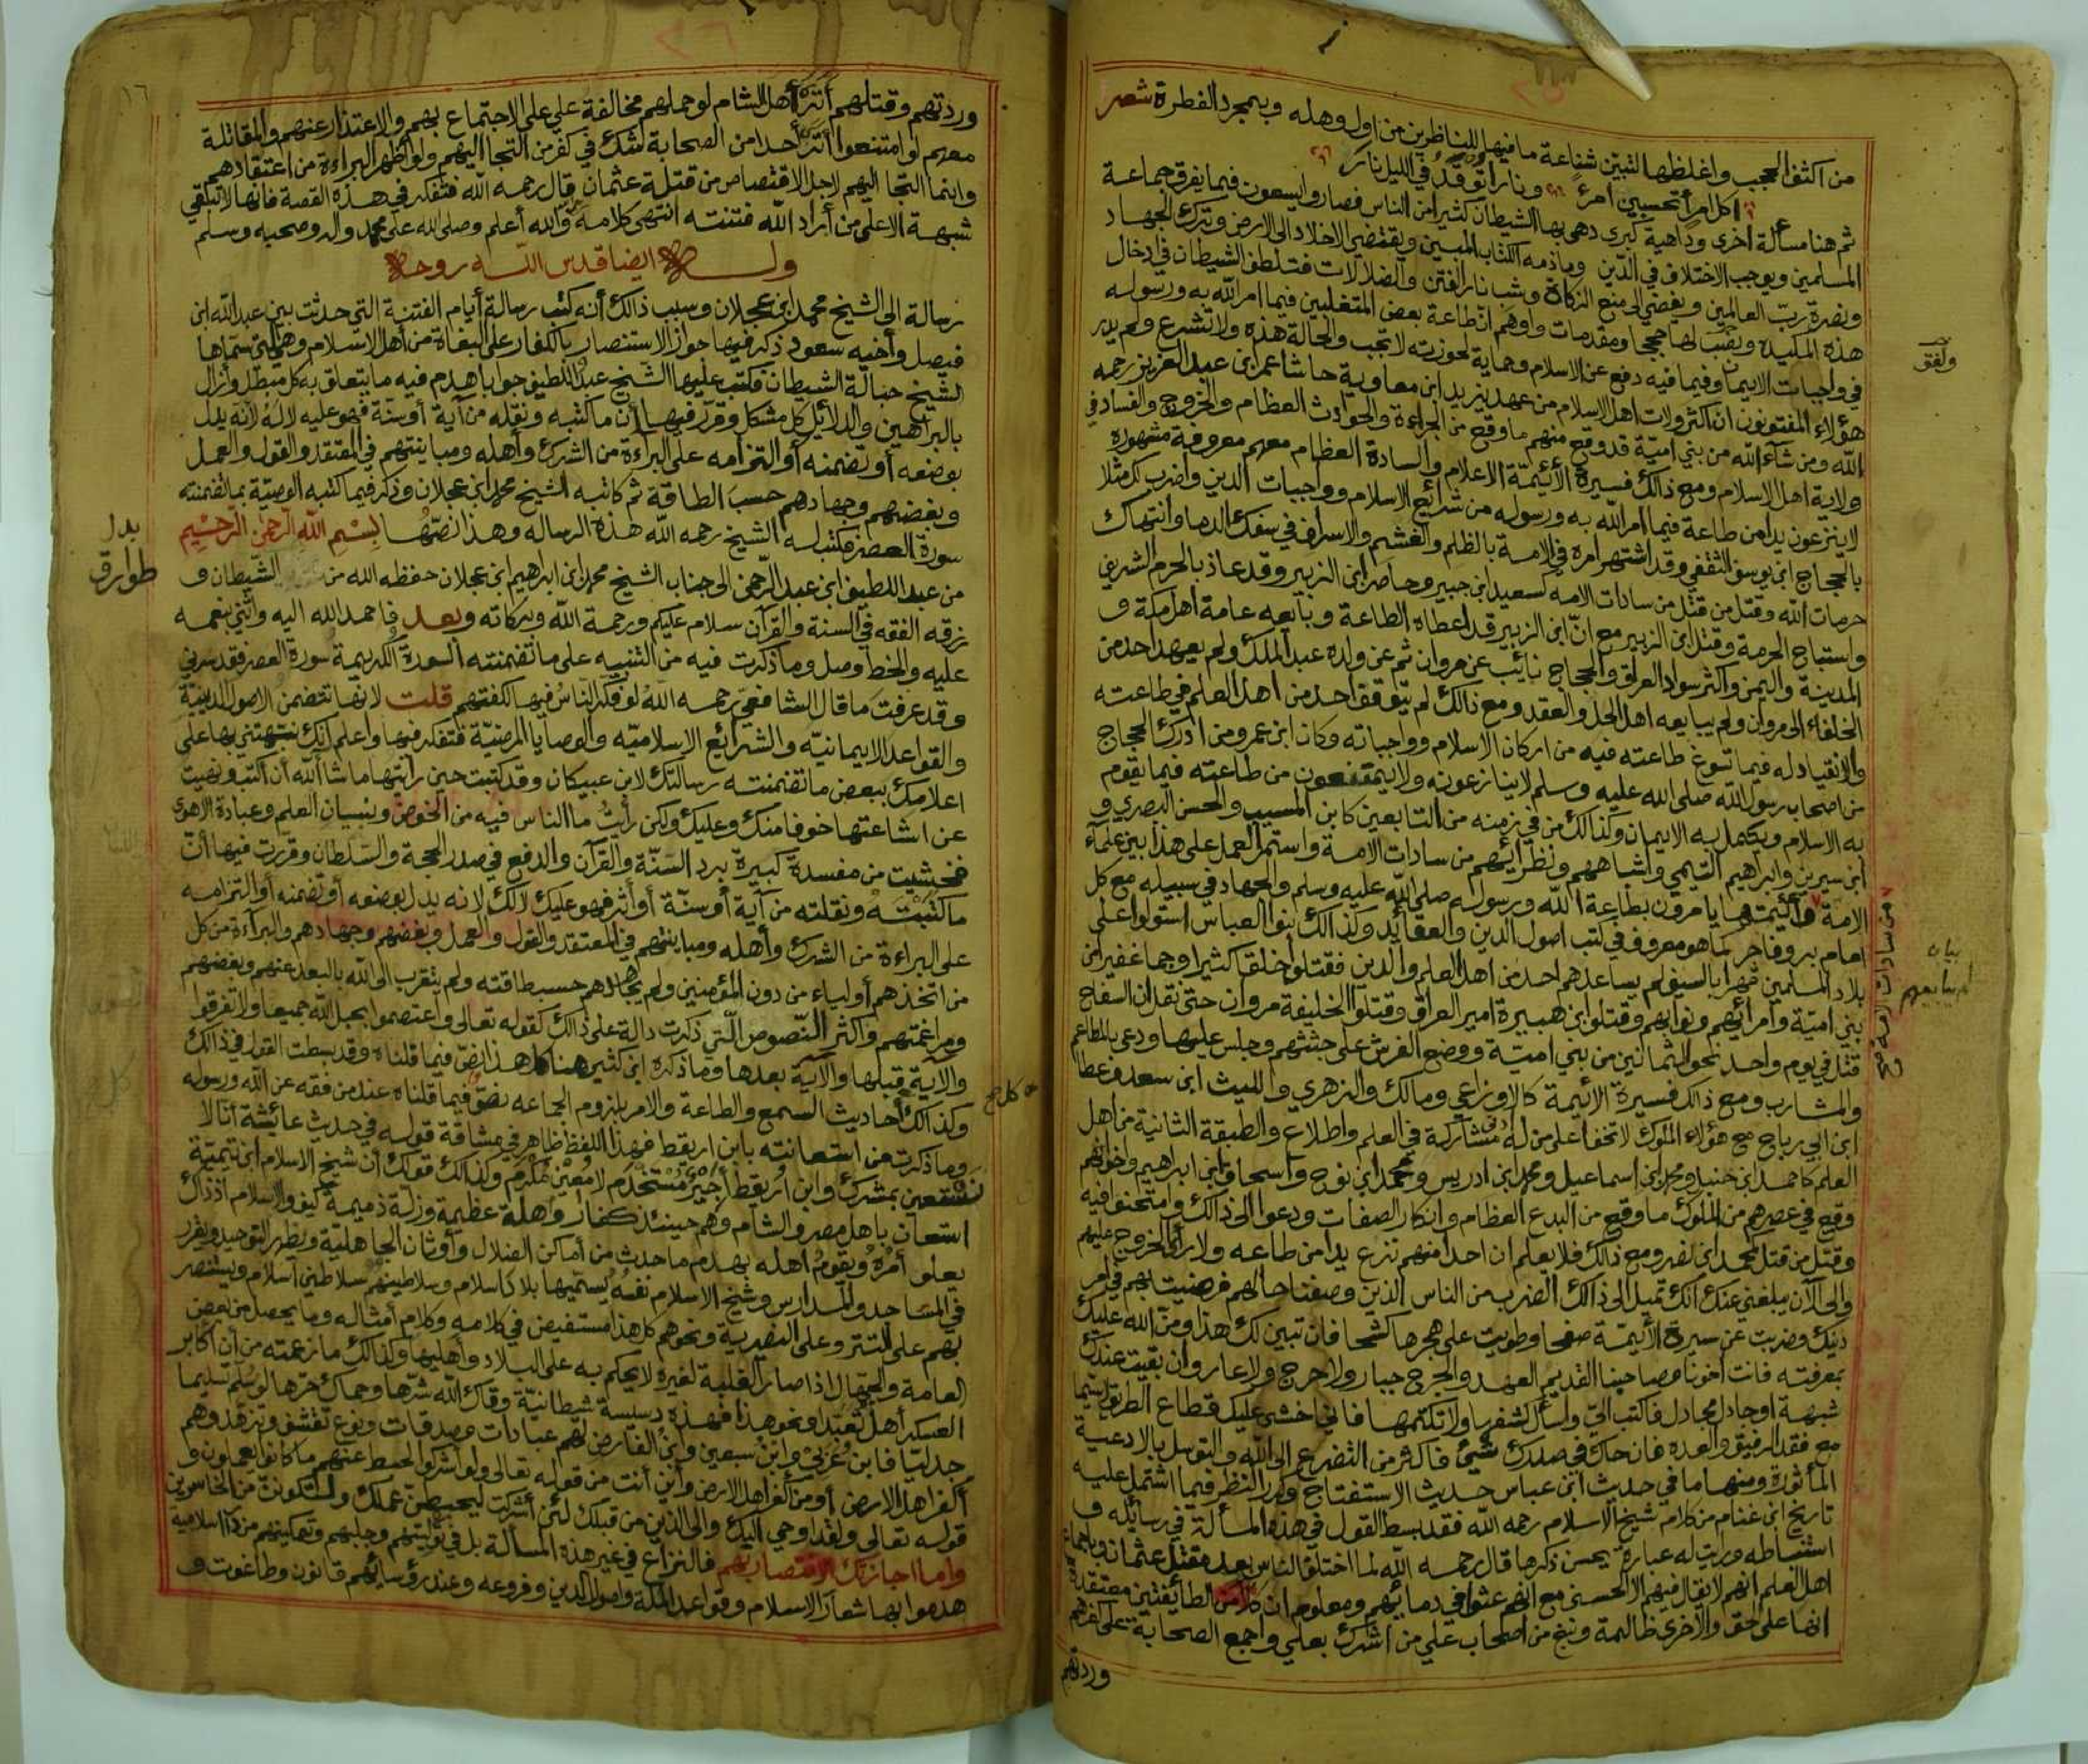 من اكثف الحجب واغلظها لتبين شناعة ما فيها للناظرين من اول وهله وبمجرد الفطرة شعر
اكل امرأ تحسبين امرئ ونارا توقد في الليل نارا
ثم هنا مسألة اخرى وداهية كبرى دهى بها الشيطان كثيرا من الناس فصاروا يسعون فيما يفرق جماعة
المسلمين ويوجب الاختلاف في الدين وما ذمه الكتاب المبين ويقتضي الاخلاد الى الارض وترك الجهاد
ونصرة رب العالمين ويفضي الى منع الزكاة وشب نار الفتن والضلالات فتلطف الشيطان في ادخال
هذه المكيدة ونصب لها حججا ومقدمات واوهم ان طاعة بعض المتغلبين فيما امر الله به ورسوله
في واجبات الايمان وفيما فيه دفع عن الاسلام وحماية لحوزته لا تجب والحالة هذه ولا تشرع ولم يدر
هؤلاء المفتونون ان اكثر ولات اهل الاسلام من عهد يزيد ابن معاوية حاشا عمر ابن عبد العزيز رحمه
الله ومن شاء الله من بني امية قد وقع منهم ما وقع من الجراءة والحوادث العظام والخروج والفساد في
ولاية اهل الاسلام ومع ذالك فسيرة الأئيمة الاعلام والسادة العظام معهم معروفة مشهورة
لا ينزعون يدا من طاعة فيما امر الله به ورسوله من شرائع الاسلام وواجبات الدين واضرب لك مثلا
بالحجاج ابن يوسف الثقفي وقد اشتهر امره في الامة بالظلم والغشم والاسراف في سفك الدما وانتهاك
حرمات الله وقتل من قتل من سادات الامه كسعيد ابن جبير وحاصر ابن الزبير وقد عاذ بالحرم الشريف
واستباح الحرمة وقتل ابن الزبير مع انّ ابن الزبير قد اعطاه الطاعة وبايعه عامة اهل مكة و
المدينة واليمن واكثر سواد العراق والحجاج نائب عن مروان ثم عن ولده عبد الملك ولم يعهد احد من
الخلفاء الى مروان ولم يبايعه اهل الحل والعقد ومع ذالك لم يتوقف احد من اهل العلم في طاعته
والانقياد له فيما تسوغ طاعته فيه من اركان الاسلام وواجباته وكان ابن عمر ومن ادرك الحجاج
من اصحاب رسول الله صلى الله عليه وسلم لا ينازعونه ولا يمتنعون من طاعته فيما يقوم
به الاسلام ويكمل به الايمان وكذالك من في زمنه من التابعين كابن المسيب والحسن البصري و
ابن سيرين وابراهيم التيمي واشباههم ونظرائهم من سادات الامة واستمر العمل على هذا بين علماء
الامة وأئيمتها يامرون بطاعة الله ورسوله صلى الله عليه وسلم والجهاد في سبيله مع كل
امام بر وفاجر كما هو معروف في كتب اصول الدين والعقائد وكذالك بنوا العباس استولوا على
بلاد المسلمين قهرا بالسيف لم يساعدهم احد من اهل العلم والدين فقتلوا خلقا كثيرا وجما غفيرا من
بني امية وامرائهم ونوابهم وقتلوا ابن هبيرة امير العراق وقتلوا الخليفة مروان حتى نقل ان السفاح
قتل في يوم واحد نحو الثمانين من بني امية ووضع الفرش على جثثهم وجلس عليها ودعى بالمطاعم
والمشارب ومع ذالك فسيرة الأئيمة كالاوزاعي ومالك والزهري والليث ابن سعد وعطا
ابن ابي رباح مع هؤلاء الملوك لا تخفا على من له مشاركة في العلم واطلاع والطبقة الثانية من اهل
العلم كاحمد ابن حنبل ومحمد ابن اسماعيل ومحمد ابن ادريس ومحمد ابن نوح واسحاق ابن ابراهيم واخوانهم
وقع في عصرهم من الملوك ما وقع من البدع العظام وانكار الصفات ودعوا الى ذالك وامتحنوا فيه
وقتل من قتل كمحمد ابن نصر ومع ذالك فلا يعلم ان احدا منهم نزع يدا من طاعه ولا رأى الخروج عليهم
والى الآن يبلغني عنك انك تميل الى ذالك الضرب من الناس الذين وصفنا حالهم فرضيت بهم في امر
دينك وضربت عن سيرة الأئيمة صفحا وطويت على هجرها كشحا فان تبين لك هذا ومن الله عليك
بمعرفته فانت اخونا وصاحبنا القديم العهد والجرح جبار ولا حرج ولا عار وان بقيت عندك
شبهة او جادل مجادل فاكتب الي واسأل كشفها ولا تكتمها فاني اخشى عليك قطاع الطريق لا سيما
مع فقد الرفيق والعده فان حاك في صدرك شئ فاكثر من التضرع الى الله والتوسل بالادعية
المأثورة ومنها ما في حديث ابن عباس حديث الاستفتاح وكرر النظر فيما اشتمل عليه
تاريخ ابن غنام من كلام شيخ الاسلام رحمه الله فقد بسط القول في هذه المسألة في رسائله و
استنباطه ورايت له عبارة يحسن ذكرها قال رحمه الله لما اختلف الناس بعد مقتل عثمان وباجماع
اهل العلم انهم لا يقال فيهم الا الحسنى مع انهم عثوا في دمائهم ومعلوم ان كلا من الطائفتين معتقدة
انها على حق والأخرى ظالمة ونبغ من اصحاب علي من اشرك بعلي واجمع الصحابة على كفرهم
وردتهم
ولفق
بيان
لم يبايعهم
وردتهم وقتلهم أترى أهل الشام لو حملهم مخالفة علي على الاجتماع بهم والاعتذار عنهم والمقاتلة
معهم لو امتنعوا أترى أحدا من الصحابة شك في كفر من التجا اليهم ولو أظهر البراءة من اعتقادهم
وانما التجا اليهم لاجل الاقتصاص من قتلة عثمان قال رحمه الله فتفكر في هذه القصة فانها لا تبقي
شبهة الا على من أراد الله فتنته انتهى كلامه والله أعلم وصلى الله على محمد واله وصحبه وسلم
وله ايضا قدس الله روحه
رسالة الى الشيخ محمد ابن عجلان وسبب ذالك أنه كتب رسالة أيام الفتنة التي حدثت بين عبد الله ابن
فيصل وأخيه سعود ذكر فيها جواز الاستنصار بالكفار على البغاة من اهل الاسلام وهي التي سماها
الشيخ حبالة الشيطان فكتب عليها الشيخ عبد اللطيف جوابا هدم فيه ما يتعلق به كل مبطل وأزال
بالبراهين والدلائيل كل مشكل وقرر فيها أن ما كتبه ونقله من آية أو سنة فهو عليه لا له لأنه يدل
بوضعه أو تضمنه أو التزامه على البراءة من الشرك وأهله ومباينتهم في المعتقد والقول والعمل
وبغضهم وجهادهم حسب الطاقة ثم كاتبه الشيخ محمد ابن عجلان وذكر فيما كتبه الوصية بما تضمنته
سورة العصر فكتب له الشيخ رحمه الله هذه الرساله وهذا نصها بسم الله الرحمن الرحيم
من عبد اللطيف ابن عبد الرحمن الى جناب الشيخ محمد ابن ابراهيم ابن عجلان حفظه الله من الشيطان و
رزقه الفقه في السنة والقرآن سلام عليكم ورحمة الله وبركاته وبعد فاحمد الله اليه واثني بنعمه
عليه والخط وصل وما ذكرت فيه من التنبيه على ما تضمنته السورة الكريمة سورة العصر فقد سرني
وقد عرفت ما قال الشافعي رحمه الله لو فكر الناس فيها لكفتهم قلت لانها تتضمن الاصول الدينية
والقواعد الايمانية والشرائع الاسلاميه والوصايا المرضية فتفكر فيها واعلم انك نبهتني بها على
اعلامك ببعض ما تضمنته رسالتك لابن عبيكان وقد كتبت حين رأيتها ما شاء الله أن اكتب ونهيت
عن اشاعتها خوفا منك وعليك ولكن رأيت ما الناس فيه من الخوض ونسيان العلم وعبادة الاهوى
فخشيت من مفسدة كبيرة برد السنة والقرآن والدفع في صدر الحجة والسلطان وقررت فيها أنّ
ما كتبته ونقلته من آية أو سنة أو أثر فهو عليك لا لك لانه يدل بوضعه أو تضمنه أو التزامه
على البراءة من الشرك وأهله ومباينتهم في المعتقد والقول والعمل وبغضهم وجهادهم والبرآءة من كل
من اتخذهم أولياء من دون المؤمنين ولم يجاهدهم حسب طاقته ولم يتقرب الى الله بالبعد عنهم وبغضهم
ومراغمتهم واكثر النصوص التي ذكرت دالة على ذالك كقوله تعالى واعتصموا بحبل الله جميعا ولا تفرقوا
والآية قبلها والآية بعدها وما ذكره ابن كثير هنا كل هذا نص فيما قلناه وقد بسطت القول في ذالك
وكذالك أحاديث السمع والطاعة والامر بلزوم الجماعه نص فيما قلناه عند من فقه عن الله ورسوله
وما ذكرت من استعانته بابن اريقط فهذا اللفظ ظاهر في مشاقة قوله في حديث عائيشة انا لا
نستعين بمشرك وابن اريقط أجير مستخدم لا معين مكرم وكذالك قولك أن شيخ الاسلام ابن تيمية
استعان باهل مصر والشام وهم حينئذ كفار وهلة عظيمة وزلة ذميمة كيف والاسلام اذ ذاك
يعلو أمره ويقوم اهله بهدم ما حدث من أماكن الضلال وأوثان الجاهلية ويظهر التوحيد ويقرر
في المساجد والمدارس وشيخ الاسلام نفسه يسميها بلاد اسلام وسلاطينهم سلاطين اسلام ويستنصر
بهم على التتر وعلى النصيرية ونحوهم كل هذا مستفيض في كلامه وكلام أمثاله وما يحصل من بعض
العامة والجهال اذا صار الغلبة لغيره لا يحكم به على البلاد وأهلها وكذالك ما زعمته من أن اكابر
العسكر أهل تعبد ونحو هذا فهذه دسيسة شيطانية وقاك الله شرها وحماك حرها لو سلم تسليما
جدليا فابن عربي وابن سبعين وابن الفارض لهم عبادات وصدقات ونوع تقشف وتزهد وهم
أكفر اهل الارض أو من أكفر اهل الارض وأين أنت من قوله تعالى ولو أشركوا لحبط عنهم ما كانوا يعملون و
قوله تعالى ولقد اوحي اليك والى الذين من قبلك لئن أشركت ليحبطن عملك ولتكونن من الخاسرين
واما اجازتك الانتصار بهم فالنزاع في غير هذه المسألة بل في توليتهم وجلبهم وتمكينهم من دار اسلاميه
هدموا بها شعار الاسلام وقواعد الملة واصول الدين وفروعه وعند رؤسائهم قانون وطاغوت و
بدل
طوارق